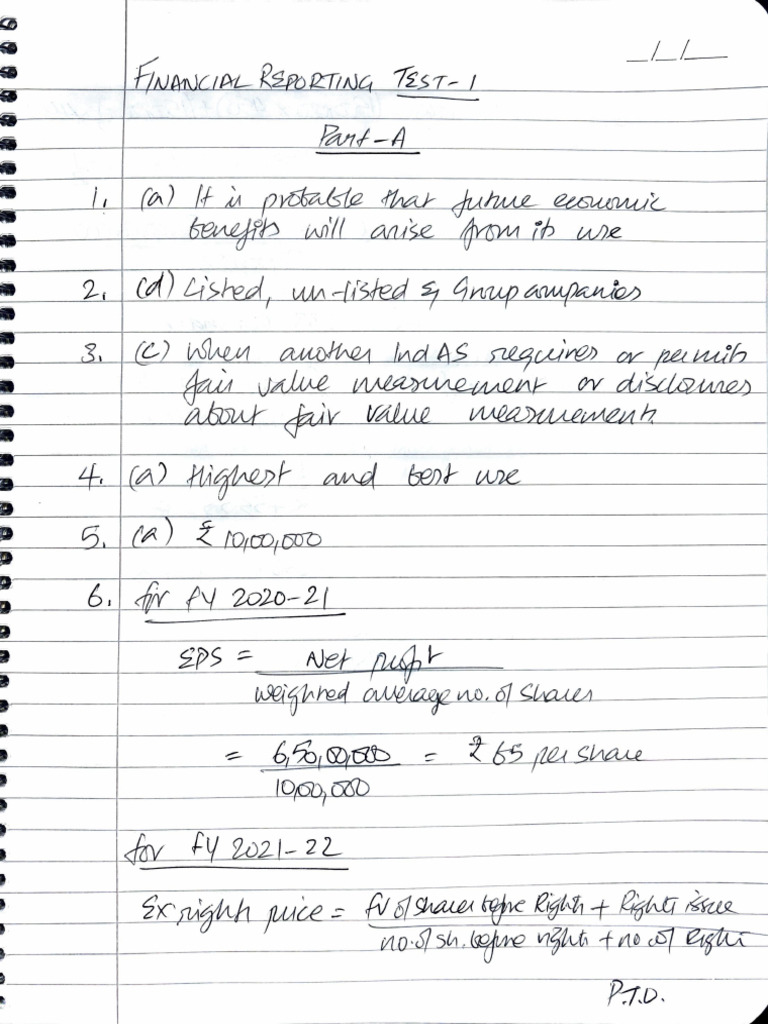 _/_/__
FINANCIAL REPORTING TEST-1
Part-A
1. (a) It is probable that future economic
benefits will arise from its use
2. (d) Listed, un-listed & Group companies
3. (c) When another Ind AS requires or permits
fair value measurement or disclosures
about fair value measurement.
4. (a) Highest and best use
5. (a) ₹ 10,00,000
6. for FY 2020-21
EPS = Net profit
weighted average no. of shares
= 6,50,00,000 = ₹ 65 per share
10,00,000
for FY 2021-22
Ex right price = FV of shares before Rights + Rights issue
no. of sh. before rights + no. of Right
P.T.O.